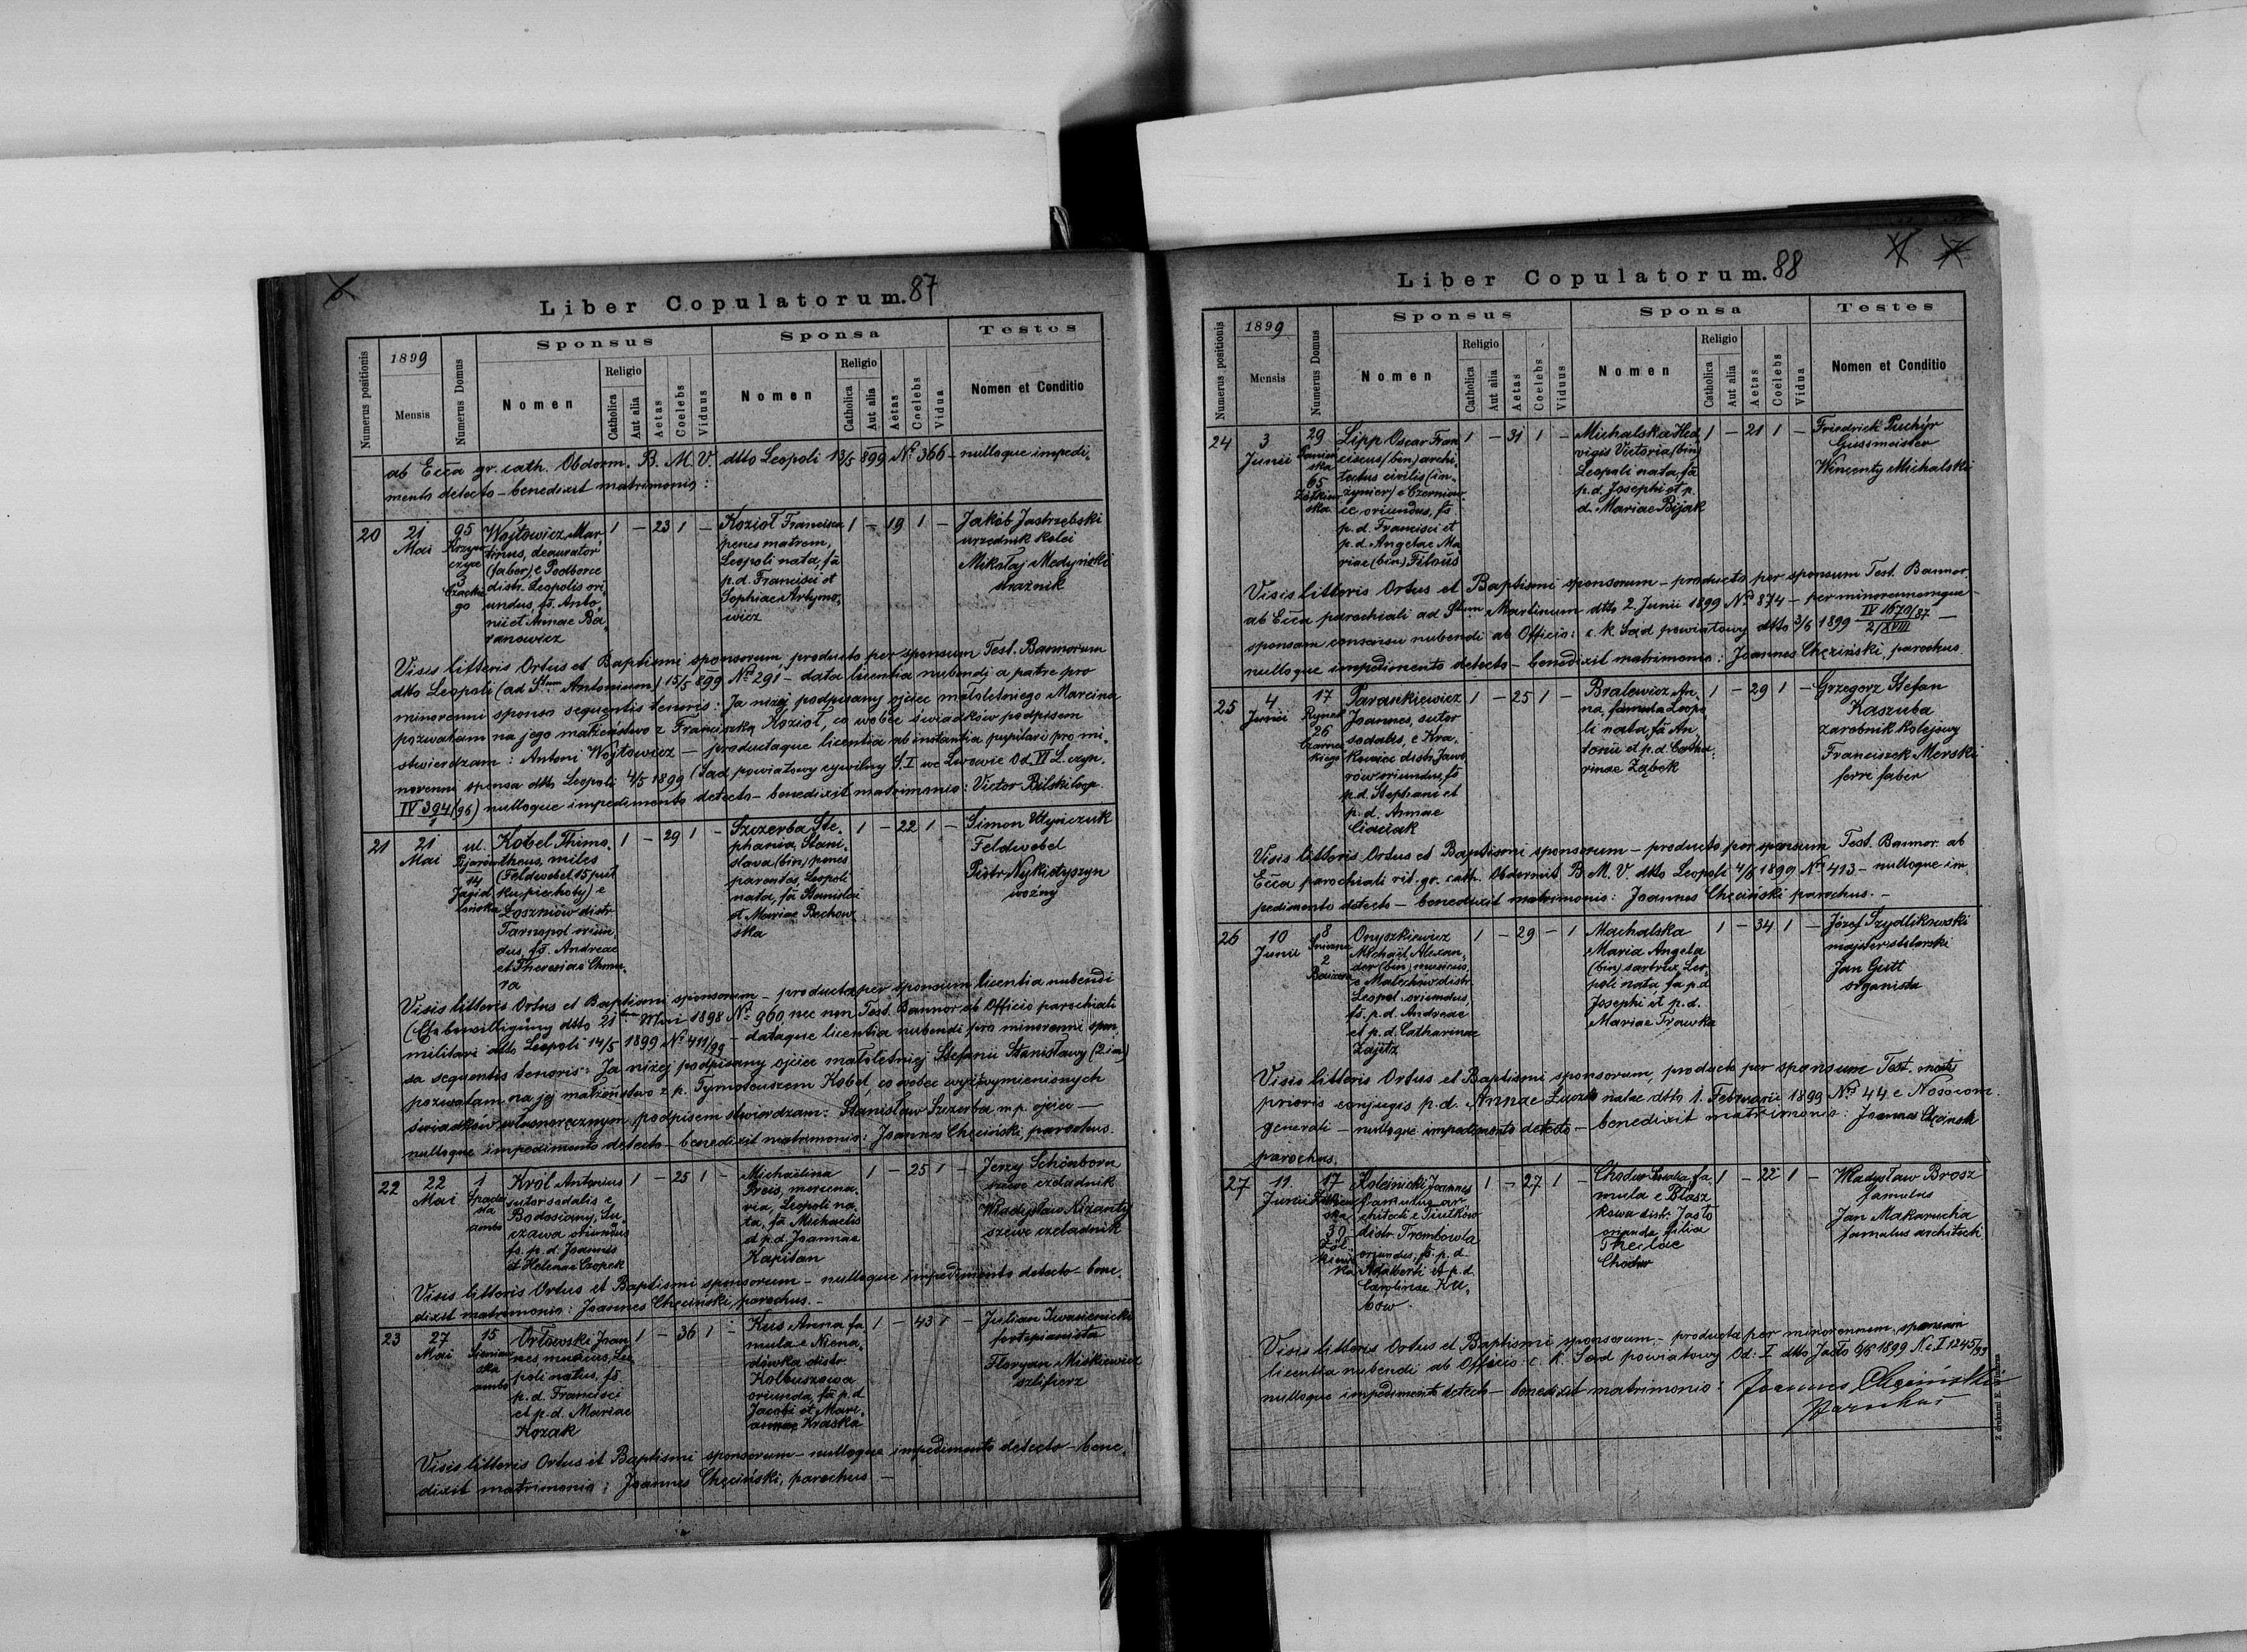 Liber Copulatorum. 87
Numerus positionis
1899
Mensis
Numerus Domus
Sponsus
Nomen
Religio
Catholica
Aut alia
Aetas
Coelebs
Viduus
Sponsa
Nomen
Religio
Catholica
Aut alia
Aetas
Coelebs
Vidua
Testes
Nomen et Conditio
ab Ecca gr. cath. Obdorm. B. M. V. dtto Leopoli 13/5 899 No 366 - nulloque impedi-
mento detecto - benedixit matrimonio:
20
21
Mai
95
3
Czackie
go
Wojtowicz Mar-
tinus, deaurator
(faber) e Podborce
distr. Leopolis ori-
undus, fs. Anto-
nii et Annae Ba-
ranowicz
1 - 23 1 -
Kozioł Francisca
penes matrem,
Leopoli nata, fa
p.d. Francisci et
Sophiae Artymo-
wicz
1 - 19 1 -
Jakób Jastrzębski
urzędnik kolei
Mikołaj Medyński
strażnik
Visis litteris Ortus et Baptismi sponsorum, producto per sponsum Test. Bannorum
dtto Leopoli (ad Stum Antonium) 15/5 899 No 291 - data licentia nubendi a patre pro
minorenni sponso sequentis tenoris: Ja niżej podpisany ojciec małoletniego Marcina
pozwalam na jego małżeństwo z Franciszką Kozioł, co wobec świadków podpisem
stwierdzam: Antoni Wojtowicz - productaque licentia ab instantia pupilari pro mi-
norenni sponsa dtto Leopoli 4/5 1899 (Sąd powiatowy cywilny S. I we Lwowie Od. VI L. czyn.
IV 394/96) nulloque impedimento detecto - benedixit matrimonio: Victor Bilski coop.
21
21
Mai
ul.
Pijarów
14
Jagiel
lońska
Kobel Thimo-
theus, miles
(Feldwebel 15 puł
ku piechoty) e
Łoszniów distr.
Tarnopol oriun
dus, fs. Andreae
et Theresiae Chmu-
ra
1 - 29 1 -
Szczerba Ste-
phania, Stani-
slava (bin) penes
parentes, Leopoli
nata, fa Stanislai
et Mariae Bechow
ska
1 - 22 1 -
Simon
Feldwebel
Piotr Nykidyszyn
woźny
Visis litteris Ortus et Baptismi sponsorum - producta per sponsum licentia nubendi
(Ehebewilligung dtto 21 Mai 1898 No 960 nec non Test. Bannor. ab Officio parochiali
militari dtto Leopoli 14/5 1899 No 411/99 - dataque licentia nubendi pro minorenni spon-
sa sequentis tenoris: Ja niżej podpisany ojciec małoletniej Stefanii Stanisławy (2im)
pozwalam na jej małżeństwo z p. Tymoteuszem Kobel, co wobec wyżwymienionych
świadków, własnoręcznym podpisem stwierdzam: Stanisław Szczerba m.p. ojciec -
nulloque impedimento detecto - benedixit matrimonio: Joannes Chęciński, parochus.
22
22
Mai
1
ambo
Król Antonius
sutor sodalis e
Bodosiany, Su-
czawa oriundus
fs. p. d. Joannis
et Helenae Czopek
1 - 25 1 -
Michaëlina
Preis, mercena-
ria, Leopoli na-
ta, fa Michaelis
et p.d. Joannae
Kapitan
1 - 25 1 -
Jerzy Schönborn
szewc czeladnik
Władysław Nizanty
szewc czeladnik
Visis litteris Ortus et Baptismi sponsorum - nulloque impedimento detecto - bene-
dixit matrimonio: Joannes Chęciński, parochus. -
23
27
Mai
15
Sieniaw
ska
ambo
Orłowski Joan
nes murarius, Leo
poli natus, fs.
p. d. Francisci
et p. d. Mariae
Kozak
1 - 36 1 -
Kus Anna fa
mula e Niena-
dówka distr.
Kolbuszowa
oriunda, fa p.d.
Jacobi et Mari-
annae Kraska
1 - 43 1 -
Julian Iwasienicki
fortepianista
Floryan Miśkiewicz
szlifierz
Visis litteris Ortus et Baptismi sponsorum - nulloque impedimento detecto - bene-
dixit matrimonio: Joannes Chęciński, parochus -
Liber Copulatorum. 88
Numerus positionis
1899
Mensis
Numerus Domus
Sponsus
Nomen
Religio
Catholica
Aut alia
Aetas
Coelebs
Viduus
Sponsa
Nomen
Religio
Catholica
Aut alia
Aetas
Coelebs
Vidua
Testes
Nomen et Conditio
24
3
Junii
29
Panień
ska
65
Żółkiew
ska
Lipp Oscar Fran
ciscus (bin) archi-
tectus civilis (in-
żynier) e Czerniow
ce oriundus, fs.
p. d. Francisci et
p. d. Angelae Ma
riae (bin) Filouš
1 - 31 1 -
Michalska Hed
vigis Victoria (bin)
Leopoli nata, fa
p.d. Josephi et p.
d. Mariae Bijak
1 - 21 1 -
Friedrick
Gussmeister
Wincenty Michalski
Visis litteris Ortus et Baptismi sponsorum - producto per sponsum Test. Bannor.
ab Ecca parochiali ad Stum Martinum dtto 2 Junii 1899 No 874 - per minorennemque
sponsam consensu nubendi ab Officio: c. k. Sąd powiatowy dtto 3/6 1899 IV 1670/87 2/XVIII -
nulloque impedimento detecto - benedixit matrimonio: Joannes Chęciński, parochus.
25
4
Junii
17
Rynek
26
Czarnec
kiego
Paraskiewicz
Joannes, sutor
sodalis, e Kra-
kowiec distr. Jawo
rów oriundus, fs.
p.d. Stephani et
p. d. Annae
Ciaciak
1 - 25 1 -
Bralewicz An-
na, famula Leopo
li nata, fa An-
tonii et p.d. Catha-
rinae Ząbek
1 - 29 1 -
Grzegorz Stefan
Kaszuba
zarobnik kolejowy
Franciszek Merski
ferri faber
Visis litteris Ortus et Baptismi sponsorum - producto per sponsum Test. Bannor. ab
Ecca parochiali rit. gr. cath. Obdormit. B. M. V. dtto Leopoli 4/6 1899 No 413 - nulloque im-
pedimento detecto - benedixit matrimonio: Joannes Chęciński parochus. -
26
10
Junii
8
Śnieżna
2
Onyszkiewicz
Michaël, Alexan-
der (bin) musicus,
e Malechów distr.
Leopol. oriundus,
fs. p.d. Andreae
et p.d. Catharinae
Zajitz
1 - 29 - 1
Machalska
Maria Angela
(bin) sartrix Leo-
poli nata fa p.d
Josephi et p. d.
Mariae Trawka
1 - 34 1 -
Józef Szydlikowski
majster stolarski
Jan Gutt
organista
Visis litteris Ortus et Baptismi sponsorum, producto per sponsum Test. mortis
prioris conjugis p.d. Annae natae dtto 1. Februarii 1899 No 44 e Nosocom.
generali - nulloque impedimento detecto - benedixit matrimonio: Joannes Chęciński
parochus.
27
11
Junii
17
Żółkiew
ska
39
Żół-
kiew
ska
Koleśnicki Joannes
famulus ar-
chitecti e Tiutków
distr. Trembowla
oriundus, fs. p. d.
Adalberti et p.d.
Carolinae Ku-
bów.
1 - 27 1 -
Chodur Rosalia, fa-
mula e Błasz
kowa distr. Jasło
oriunda, filia
Theclae
Chodur
1 - 22 1 -
Władysław Brosz
famulus
Jan Makarucha
famulus architecti
Visis litteris Ortus et Baptismi sponsorum, - producta per minorennem sponsam
licentia nubendi ab Officio: c. k. Sąd powiatowy Od: I dtto Jasło 6/6 1899 N. c I 1245/99
nulloque impedimento detecto - benedixit matrimonio: Joannes Chęciński
Parochus
Z drukarni E. Winiarza